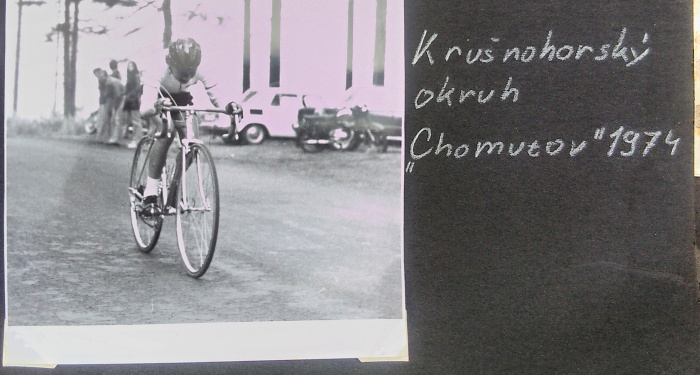 Krušnohorský
okruh
„Chomutov" 1974